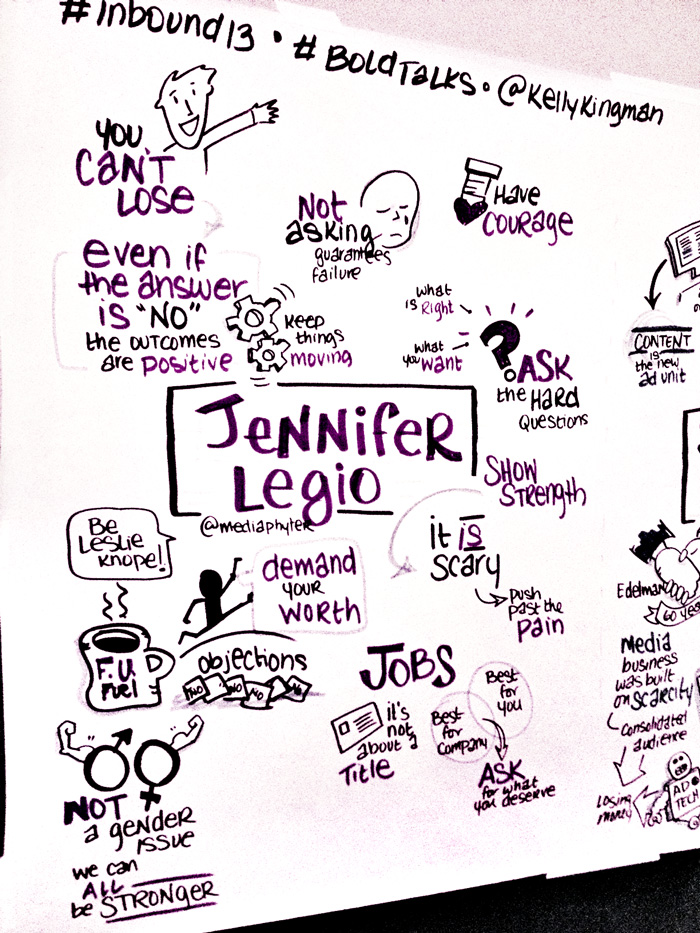 #Inbound13 • #BoldTalks • @KellyKingman
YOU
CAN'T
LOSE
even if
the answer
is "NO"
the outcomes
are positive
Not
asking
guarantees
failure
Have
Courage
Keep
things
moving
what
is Right
what
you want
?
ASK
the HARD
Questions
Jennifer
Legio
@mediaphyter
Show
Strength
it is
scary
Push
past the
Pain
Be
Leslie
Knope!
F.U.
Fuel
demand
your
worth
objections
NO
NO
NO
JOBS
it's
not
about a
Title
Best
for
Company
Best
for
you
ASK
for what
you deserve
NOT
a gender
issue
we can
ALL
be STRONGER
CONTENT
is
the new
ad unit
Edelman
Media
business
was built
on scarcity
Consolidated
audience
Losing
money
AD
TECH